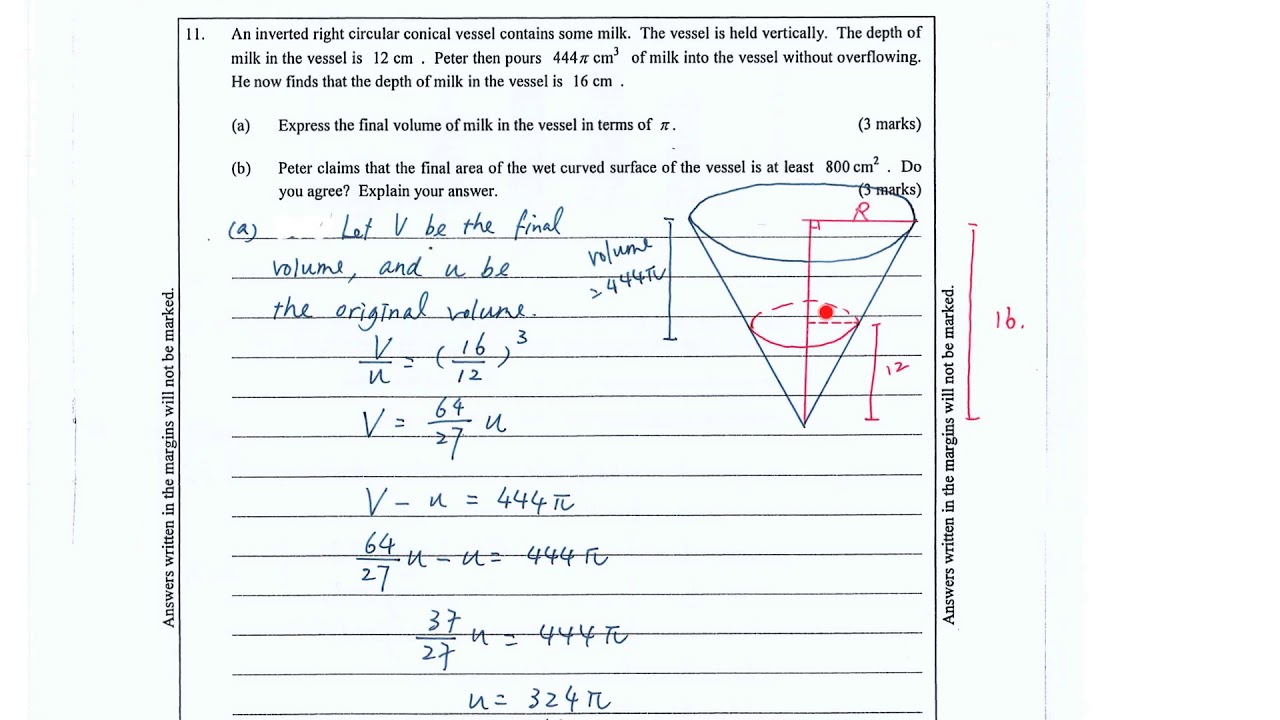 11. An inverted right circular conical vessel contains some milk. The vessel is held vertically. The depth of
milk in the vessel is 12 cm . Peter then pours 444π cm³ of milk into the vessel without overflowing.
He now finds that the depth of milk in the vessel is 16 cm .
(a) Express the final volume of milk in the vessel in terms of π. (3 marks)
(b) Peter claims that the final area of the wet curved surface of the vessel is at least 800 cm² . Do
you agree? Explain your answer. (3 marks)
(a) Let V be the final
volume, and u be
the original volume.
V/u = (16/12)³
V = 64/27 u
V - u = 444π
64/27 u - u = 444π
37/27 u = 444π
u = 324π
volume
= 444π
R
12
16.
Answers written in the margins will not be marked.
Answers written in the margins will not be marked.